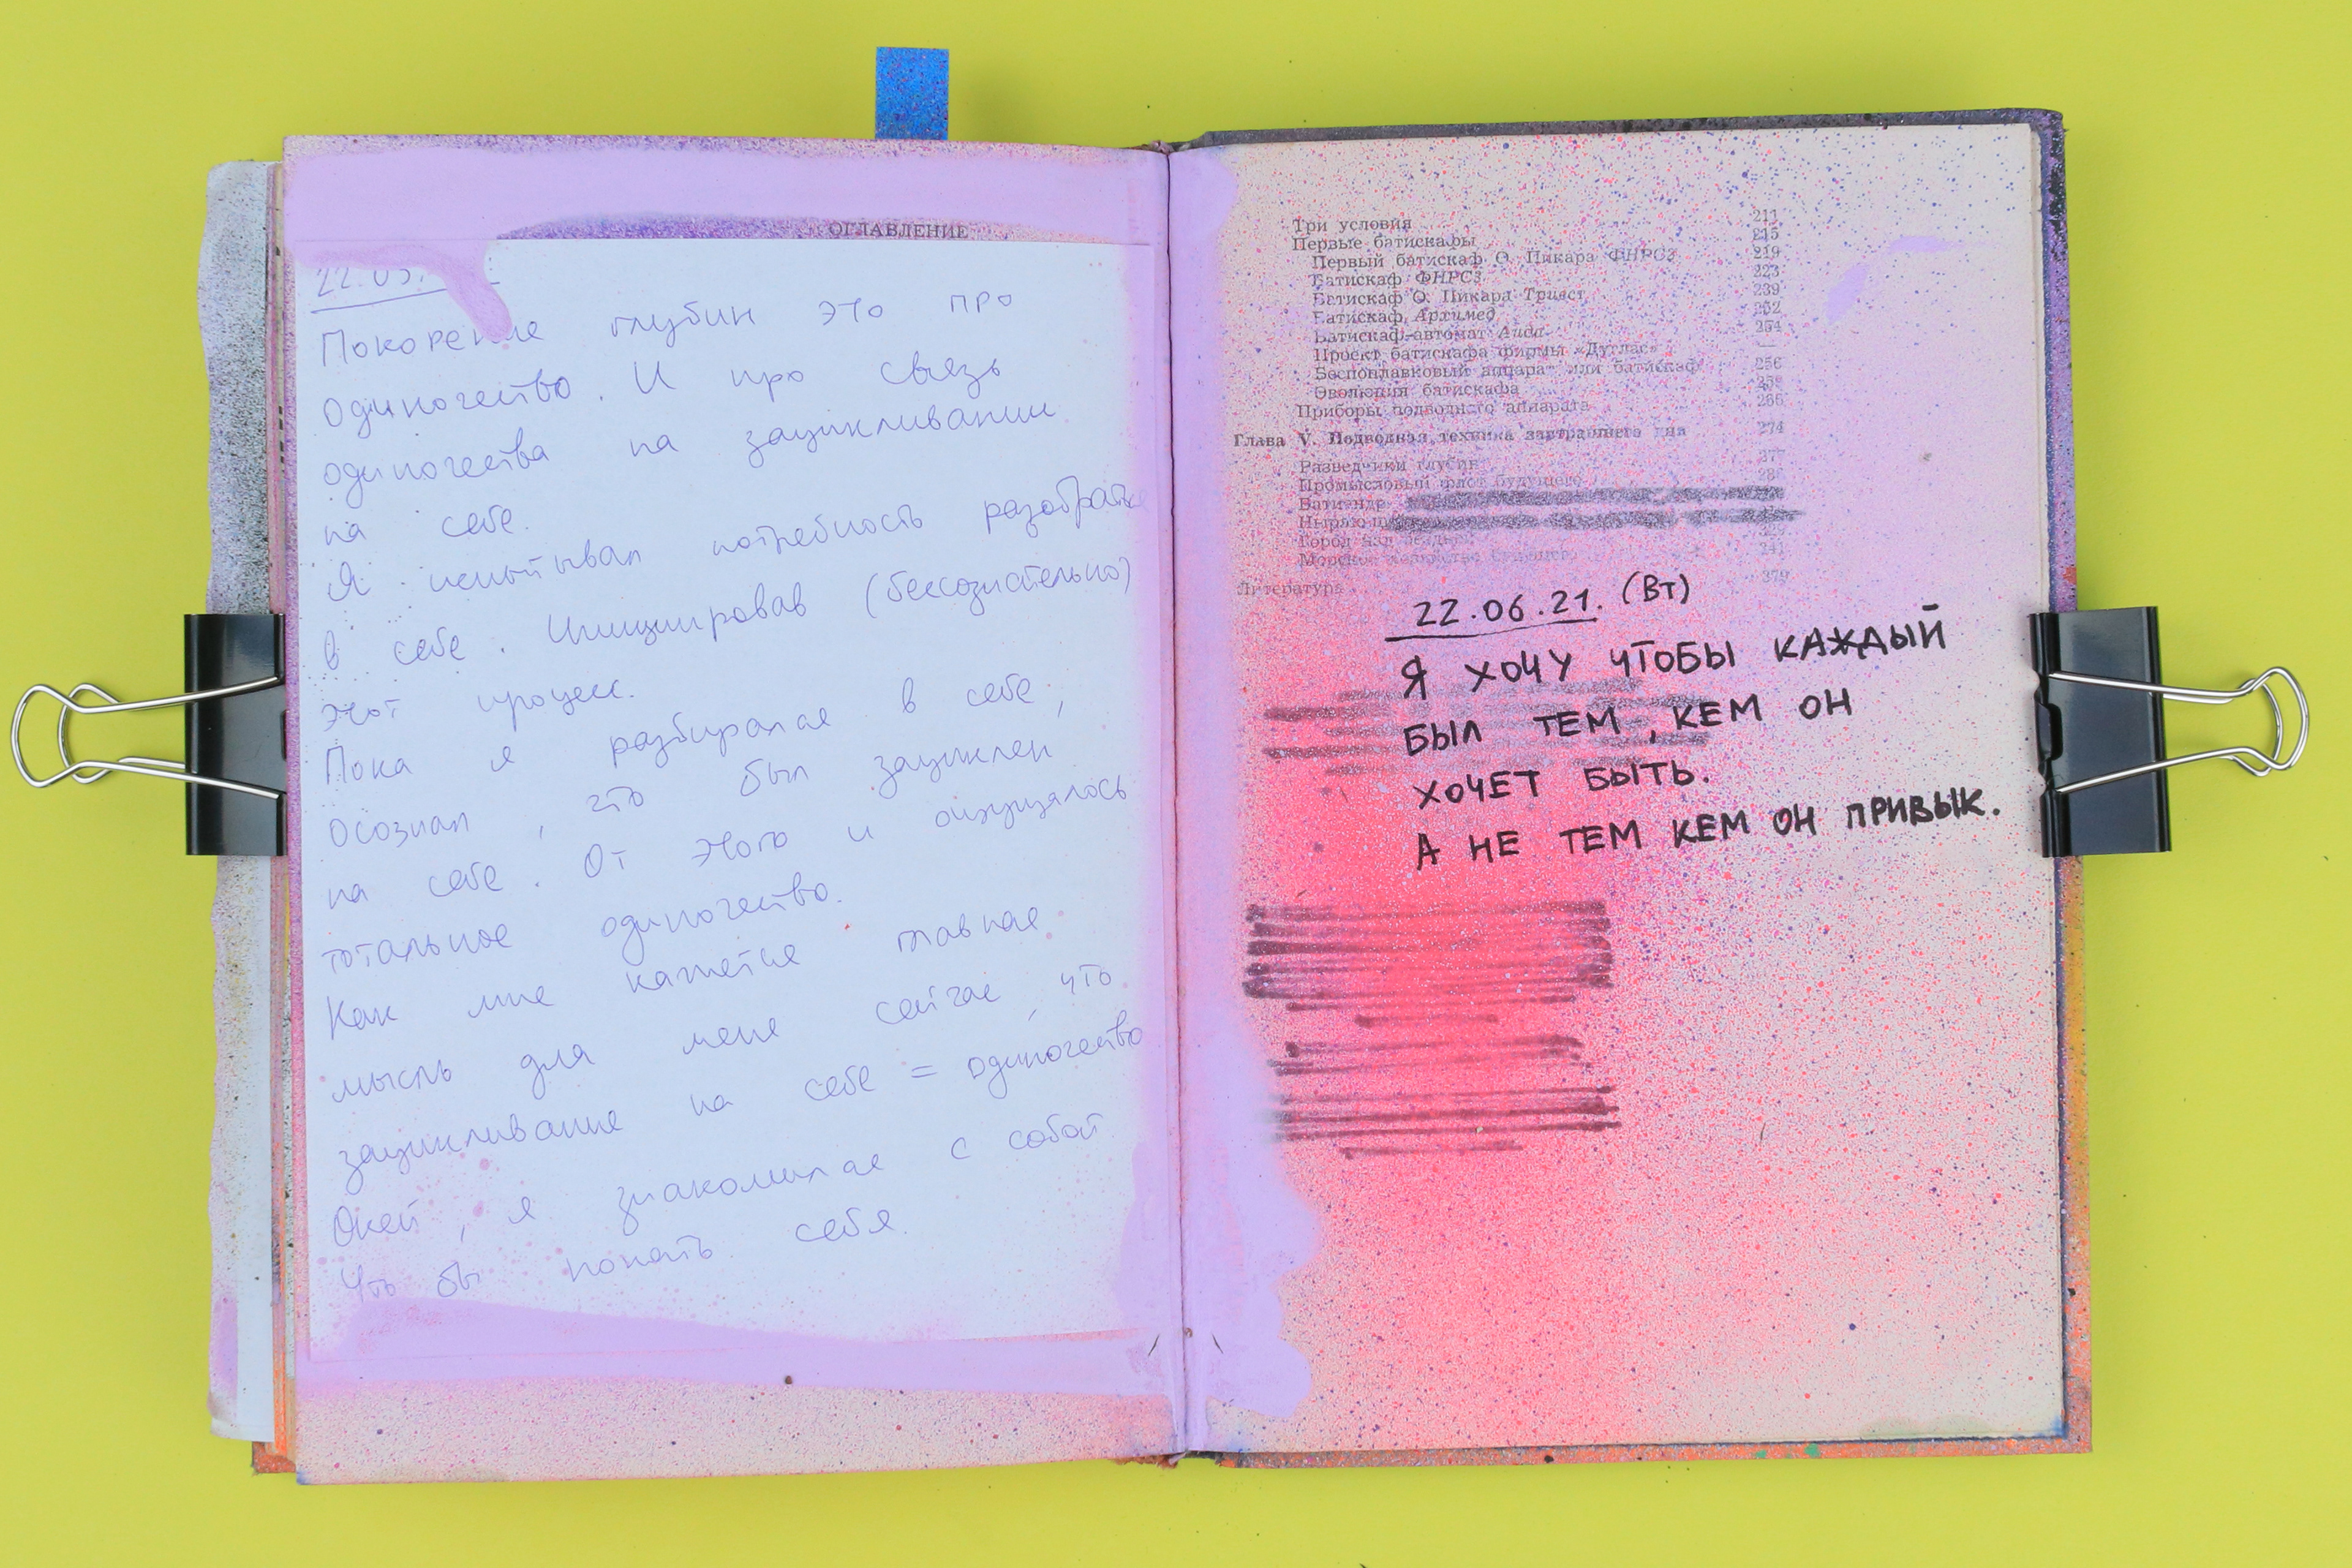 ОГЛАВЛЕНИЕ
22.05.
Покорение глубин это про
одиночество. И про связь
одиночества на зацикливании
на себе.
Я испытывал потребность разобраться
в себе. Инициировав (бессознательно)
этот процесс.
Пока я разбирался в себе,
осознал, что был зациклен
на себе. От этого и ощущалось
тотальное одиночество.
Как мне кажется главная
мысль для меня сейчас, что
зацикливание на себе = одиночество
Окей, я знакомился с собой
Что бы понять себя.
Три условия 211
Первые батискафы 215
Первый батискаф О. Пикара ФНРС2 219
Батискаф ФНРС3 223
Батискаф О. Пикара Триест 239
Батискаф Архимед 252
Батискаф-автомат Аида 254
Проект батискафа фирмы «Дуглас» —
Беспоплавковый аппарат или батискаф 256
Эволюция батискафа
Приборы подводного аппарата
Глава V. Подводная техника завтрашнего дня 274
Разведчики глубин 277
Промысловый флот будущего
Город над бездной
Литература 379
22.06.21. (Вт)
Я ХОЧУ ЧТОБЫ КАЖДЫЙ
БЫЛ ТЕМ, КЕМ ОН
ХОЧЕТ БЫТЬ.
А НЕ ТЕМ КЕМ ОН ПРИВЫК.